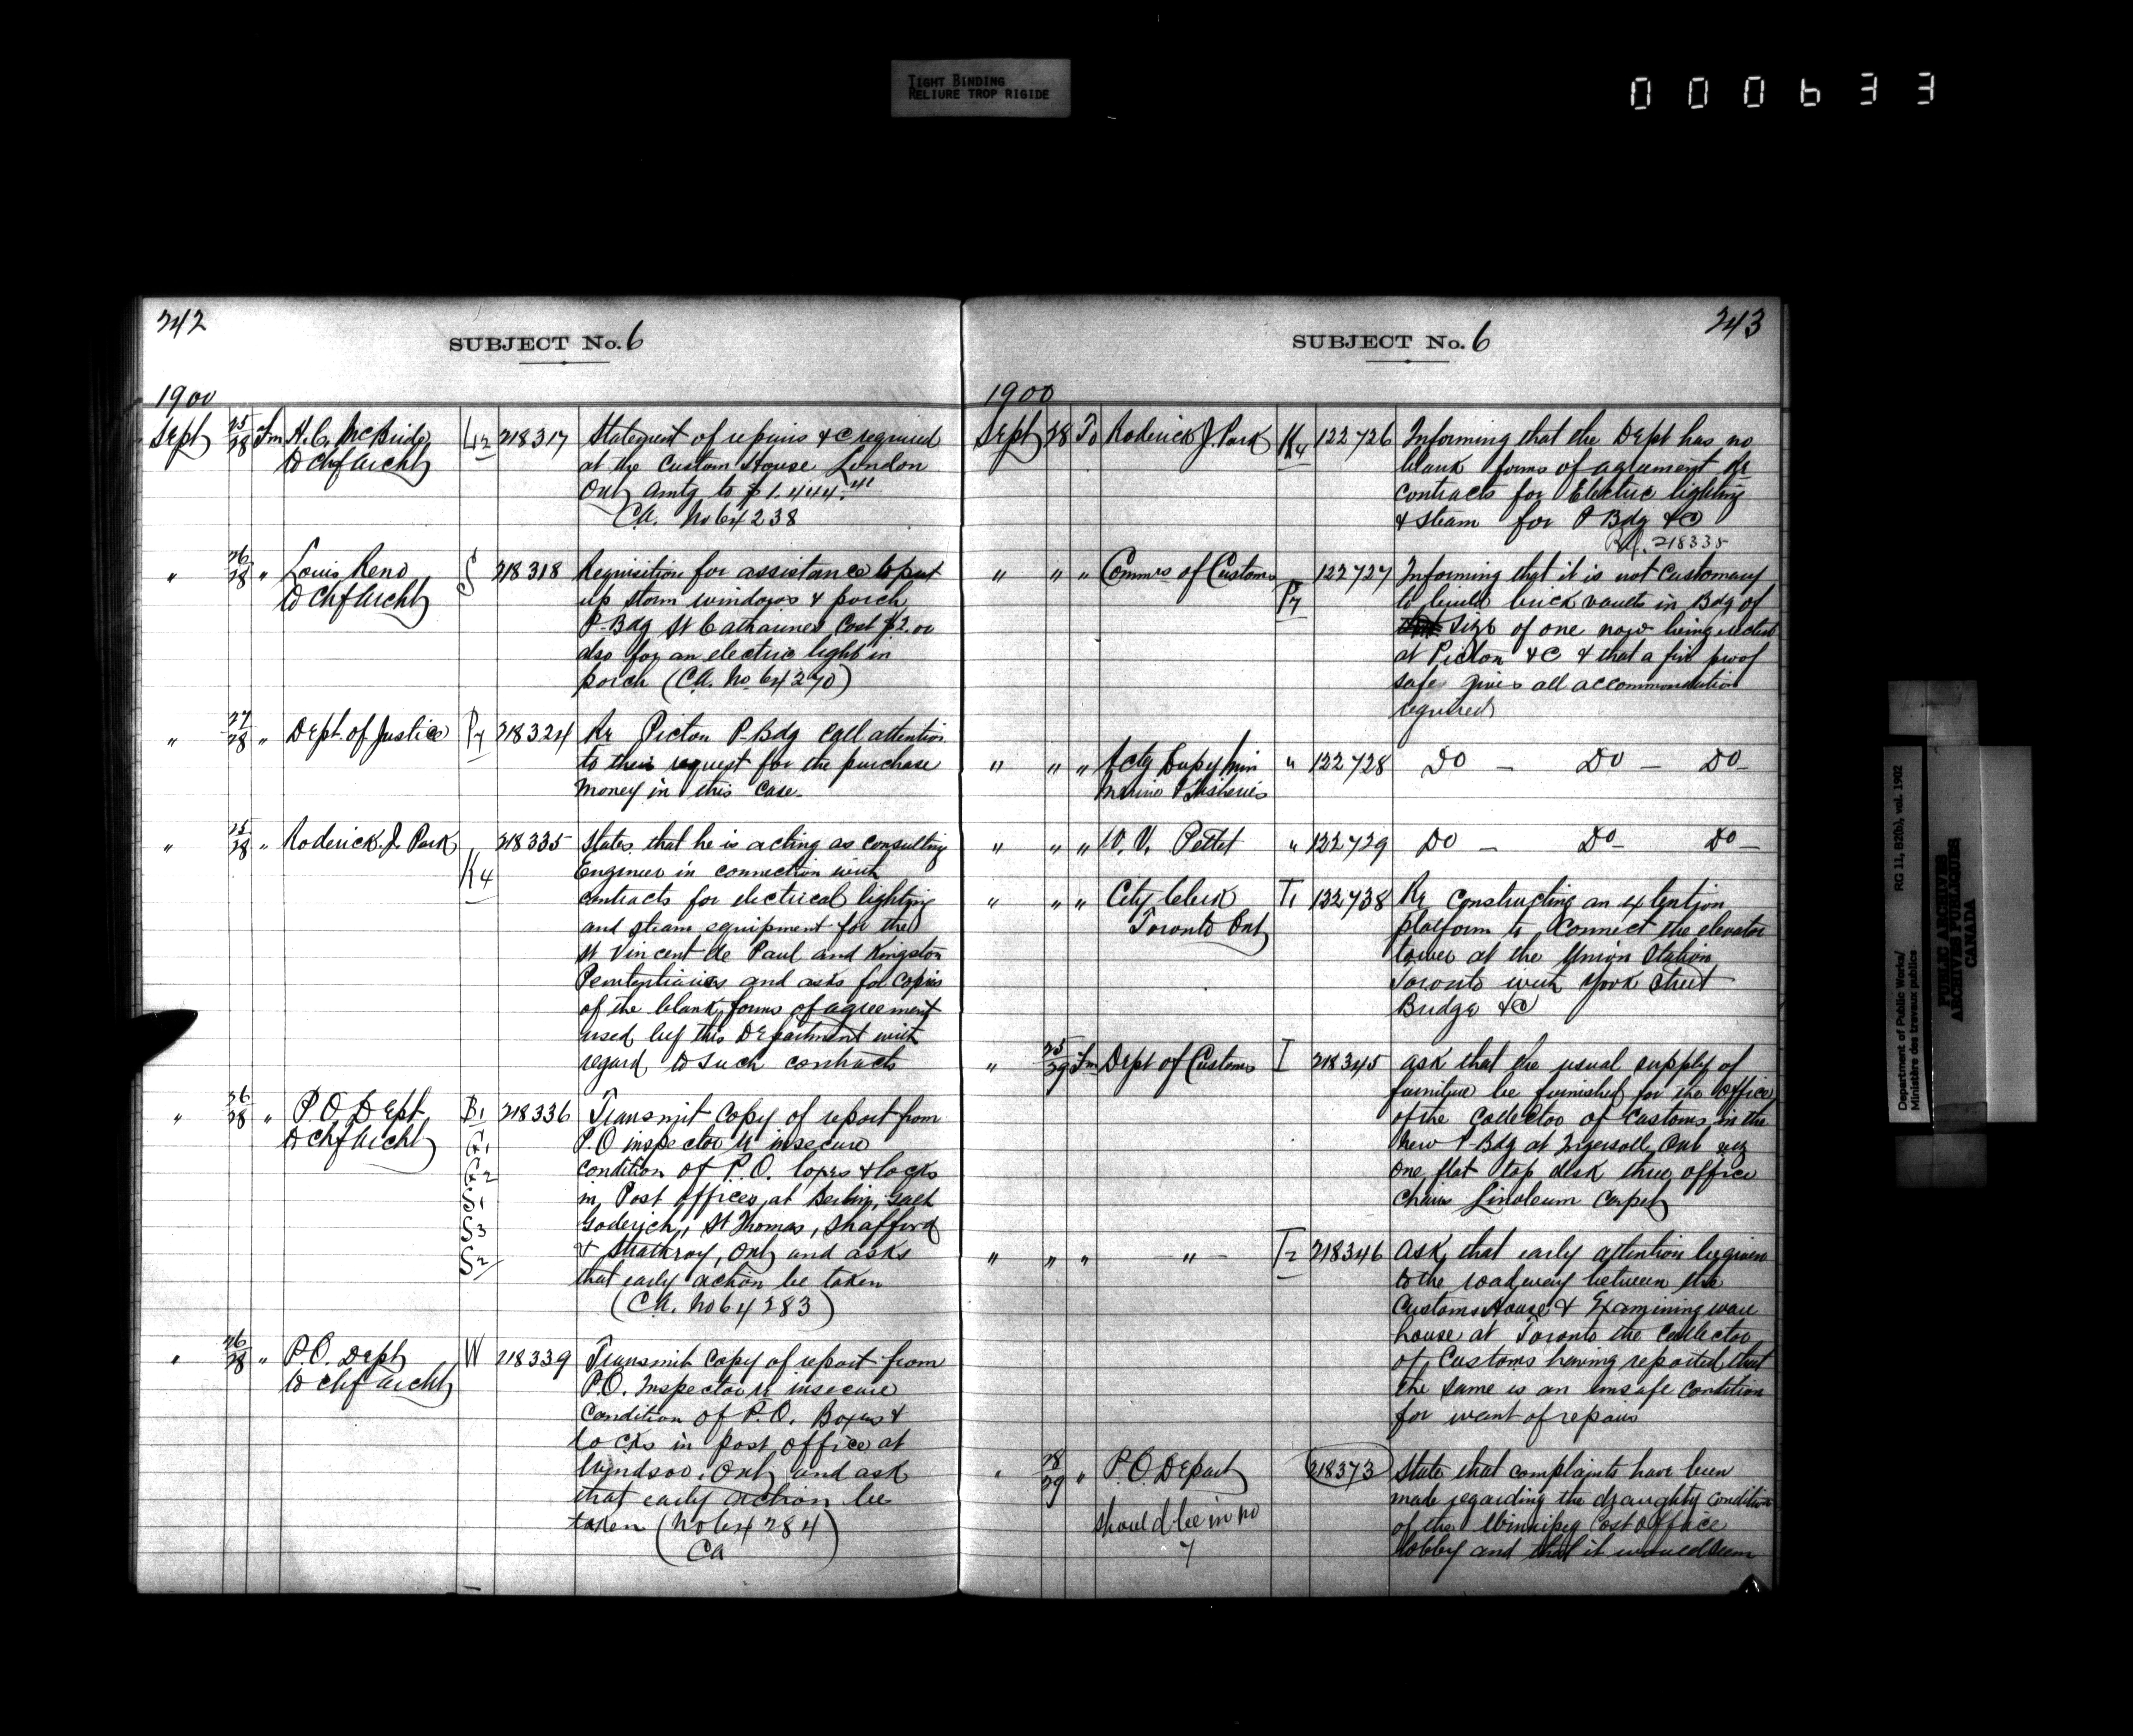 TIGHT BINDING
RELIURE TROP RIGIDE
000633
242
SUBJECT No. 6
1900
Sept 25/28 Fm H.C. McBride L2 218317 Statement of repairs &c required
to Chf Archt at the Custom House London
Ont amtg to $1.444.41
C.A. No 64238
" 26/28 " Louis Reno S 218318 Requisition for assistance to put
to Chf Archt up storm windows & porch
P-Bdg St Catharines Cost $2.00
also for an electric light in
porch (C.A. No 64270)
" 27/28 " Dept. of Justice P7 218324 Re Picton P-Bdg Call attention
to their request for the purchase
money in this case.
" 25/28 " Roderick. J. Park K4 218335 States that he is acting as consulting
Engineer in connection with
contracts for electrical lighting
and steam equipment for the
St Vincent de Paul and Kingston
Penitentiaries and asks for copies
of the blank forms of agreement
used by this Department with
regard to such contracts
" 26/28 " P.O. Dept B1 218336 Transmit Copy of report from
to Chf Archt G1 P.O inspector re insecure
G2 condition of P.O. boxes & locks
S1 in Post Offices at Berlin, Galt
S3 Goderich, St Thomas, Shafford
S2 & Strathroy, Ont and asks
that early action be taken
(C.A. No 64283)
" 26/28 " P.O. Dept W 218339 Transmit Copy of report from
to Chf Archt P.O. Inspector re insecure
Condition of P.O. Boxes &
locks in post office at
Windsor, Ont and ask
that early action be
taken (No 64284)
CA
243
SUBJECT No. 6
1900
Sept 28 To Roderick J. Park K4 122726 Informing that the Dept has no
blank forms of agreement re
contracts for Electric lighting
& steam for P Bdg &c
Ref. 218335
" " " Commrs of Customs P7 122727 Informing that it is not customary
to build brick vaults in Bdg of
size of one now being erected
at Picton &c & that a fire proof
safe gives all accommodation
required
" " " Actg Dupy Min " 122728 Do — Do — Do —
Marine & Fisheries
" " " W. V. Pettet " 122729 Do — Do — Do —
" " " City Clerk T1 122738 Re Constructing an extention
Toronto Ont platform to Connect the elevator
tower at the Union Station
Toronto with York Street
Bridge &c
" 25/29 Fm Dept of Customs I 218345 ask that the usual supply of
furniture be furnished for the Office
of the Collector of Customs in the
New P-Bdg at Ingersoll, Ont viz
one flat top desk three office
chairs Linoleum Carpet
" " " — " — T2 218346 Ask that early attention be given
to the roadway between the
Customs House & Examining ware
house at Toronto the Collector
of Customs having reported that
the same is an unsafe Condition
for want of repairs
" 28/29 " P.O. Depart 218373 State that complaints have been
should be in no made regarding the draughty Condition
7 of the Winnipeg Post Office
lobby and that it would seem
Department of Public Works/ RG 11, B2(b), vol. 1902
Ministère des travaux publics
PUBLIC ARCHIVES
ARCHIVES PUBLIQUES
CANADA